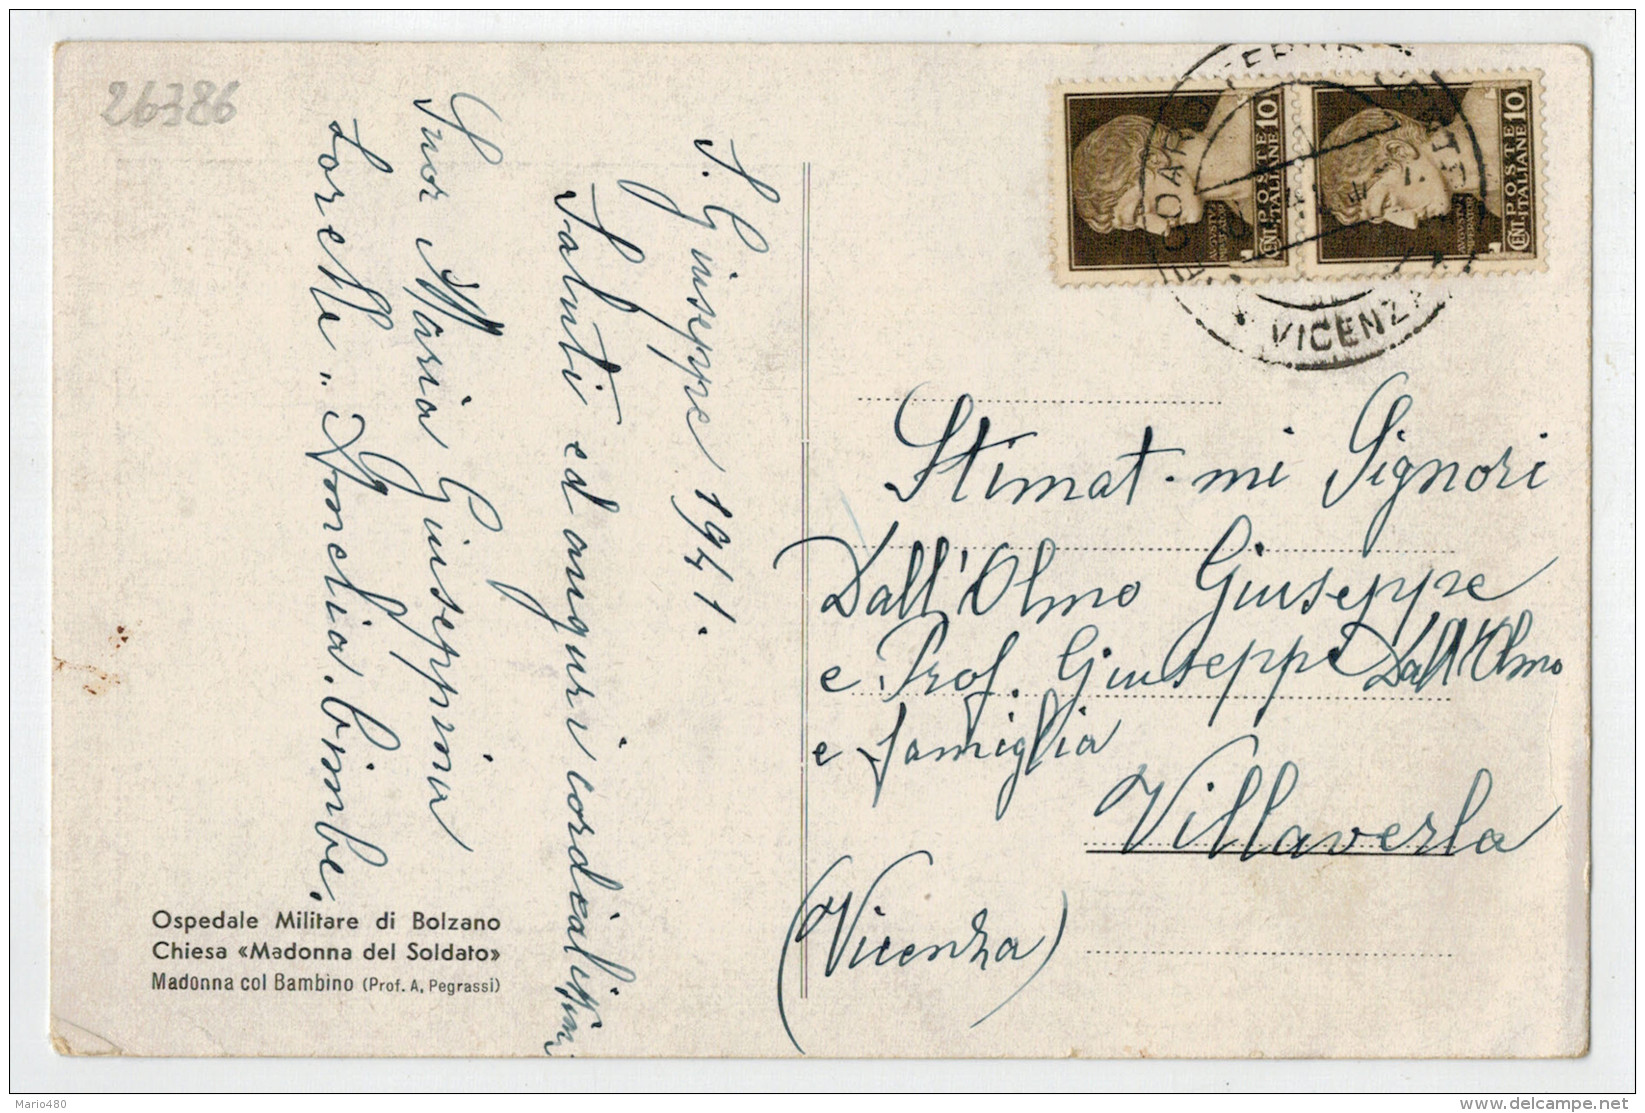 26386
S. Giuseppe 1941.
Saluti ed auguri cordialissimi
Suor Maria Giuseppina
Loretta .. Amelia. bimbe.
Ospedale Militare di Bolzano
Chiesa «Madonna del Soldato»
Madonna col Bambino (Prof. A. Pegrassi)
CENT. POSTE 10
ITALIANE
CENT. POSTE 10
ITALIANE
VICENZA
Stimat.mi Signori
Dall'Olmo Giuseppe
e Prof. Giuseppe Dall'Olmo
e famiglia
Villaverla
(Vicenza)
Mario480
delcampe.net